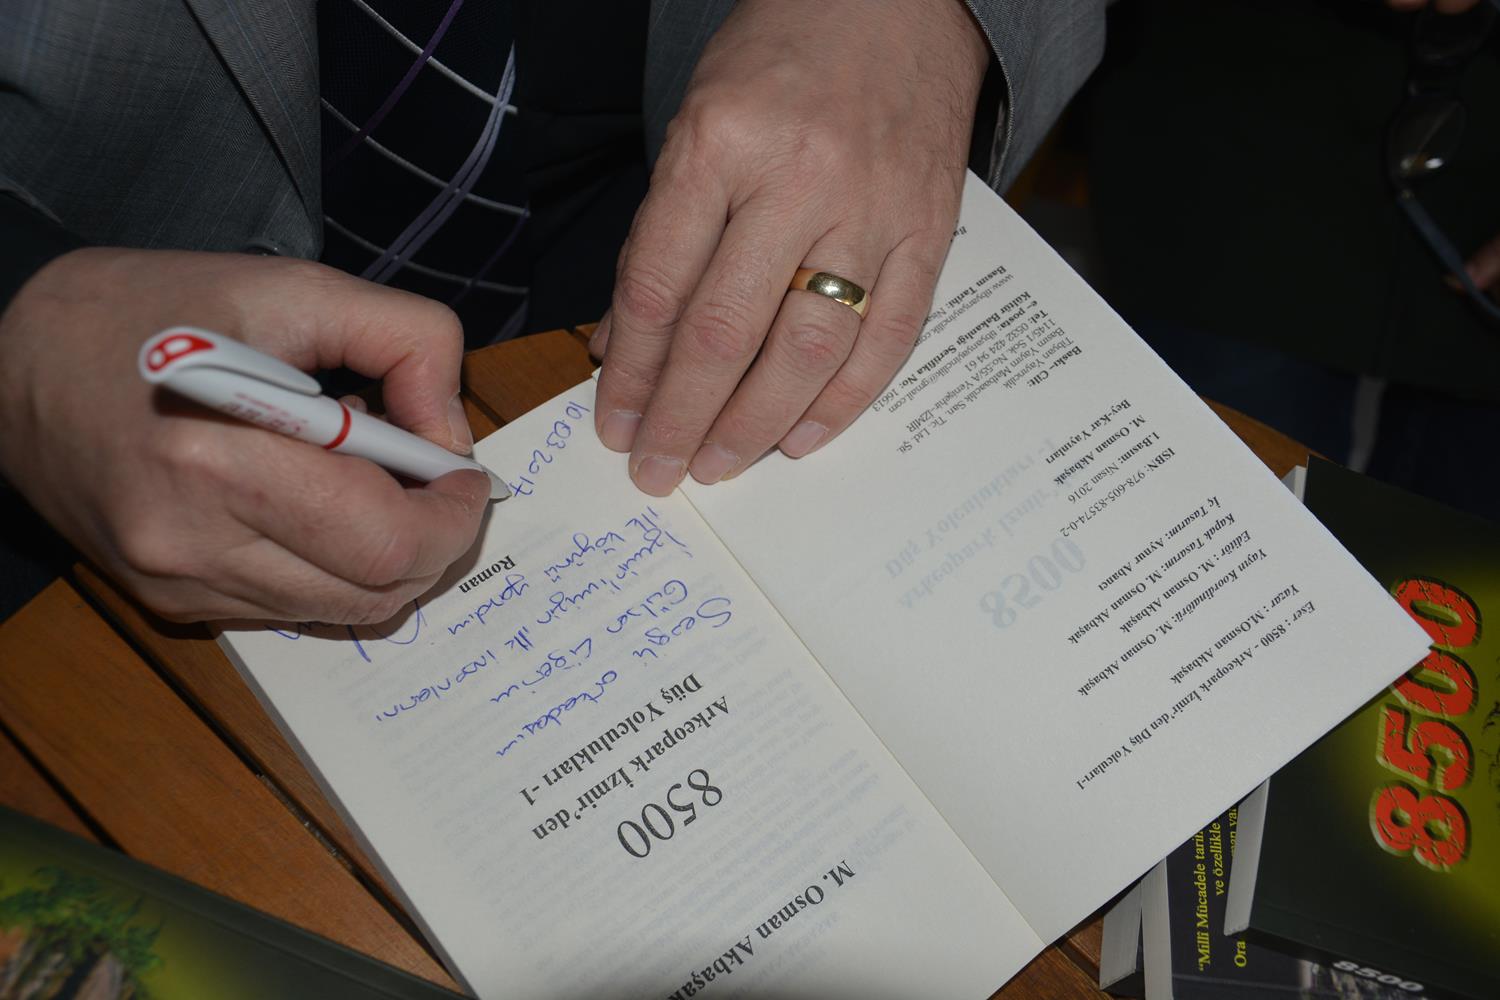 M. Osman Akbaşak
8500
Arkeopark İzmir'den
Düş Yolculukları -1
Sevgili arkadaşım
İzmir'imizin ilk insanlarını
ilk köyünü yazdım
Roman
10.03.2017
Eser : 8500 - Arkeopark İzmir'den Düş Yolcuları-1
Yazar : M.Osman Akbaşak
Yayın Koordinatörü: M. Osman Akbaşak
Editör : M. Osman Akbaşak
Kapak Tasarım: M. Osman Akbaşak
İç Tasarım: Aynur Abancı
ISBN: 978-605-83574-0-2
1.Basım: Nisan 2016
M. Osman Akbaşak
Bey-Kar Yayınları
Baskı- Cilt:
Tibyan Yayıncılık
Basım Yayım Matbaacılık San. Tic. Ltd. Şti.
1145/1 Sok. No:55/A Yenişehir-İZMİR
Tel: 0532 424 94 61
e- posta: tibyanyayincilik@gmail.com
Kültür Bakanlığı Sertifika No: 16613
www.tibyanyayincilik.com
Basım Tarihi: Nisa
8500
Arkeopark İzmir'd
Düş Yolculukları -1
8500
8500
"Milli Mücadele tarih
ve özellikle
Ora